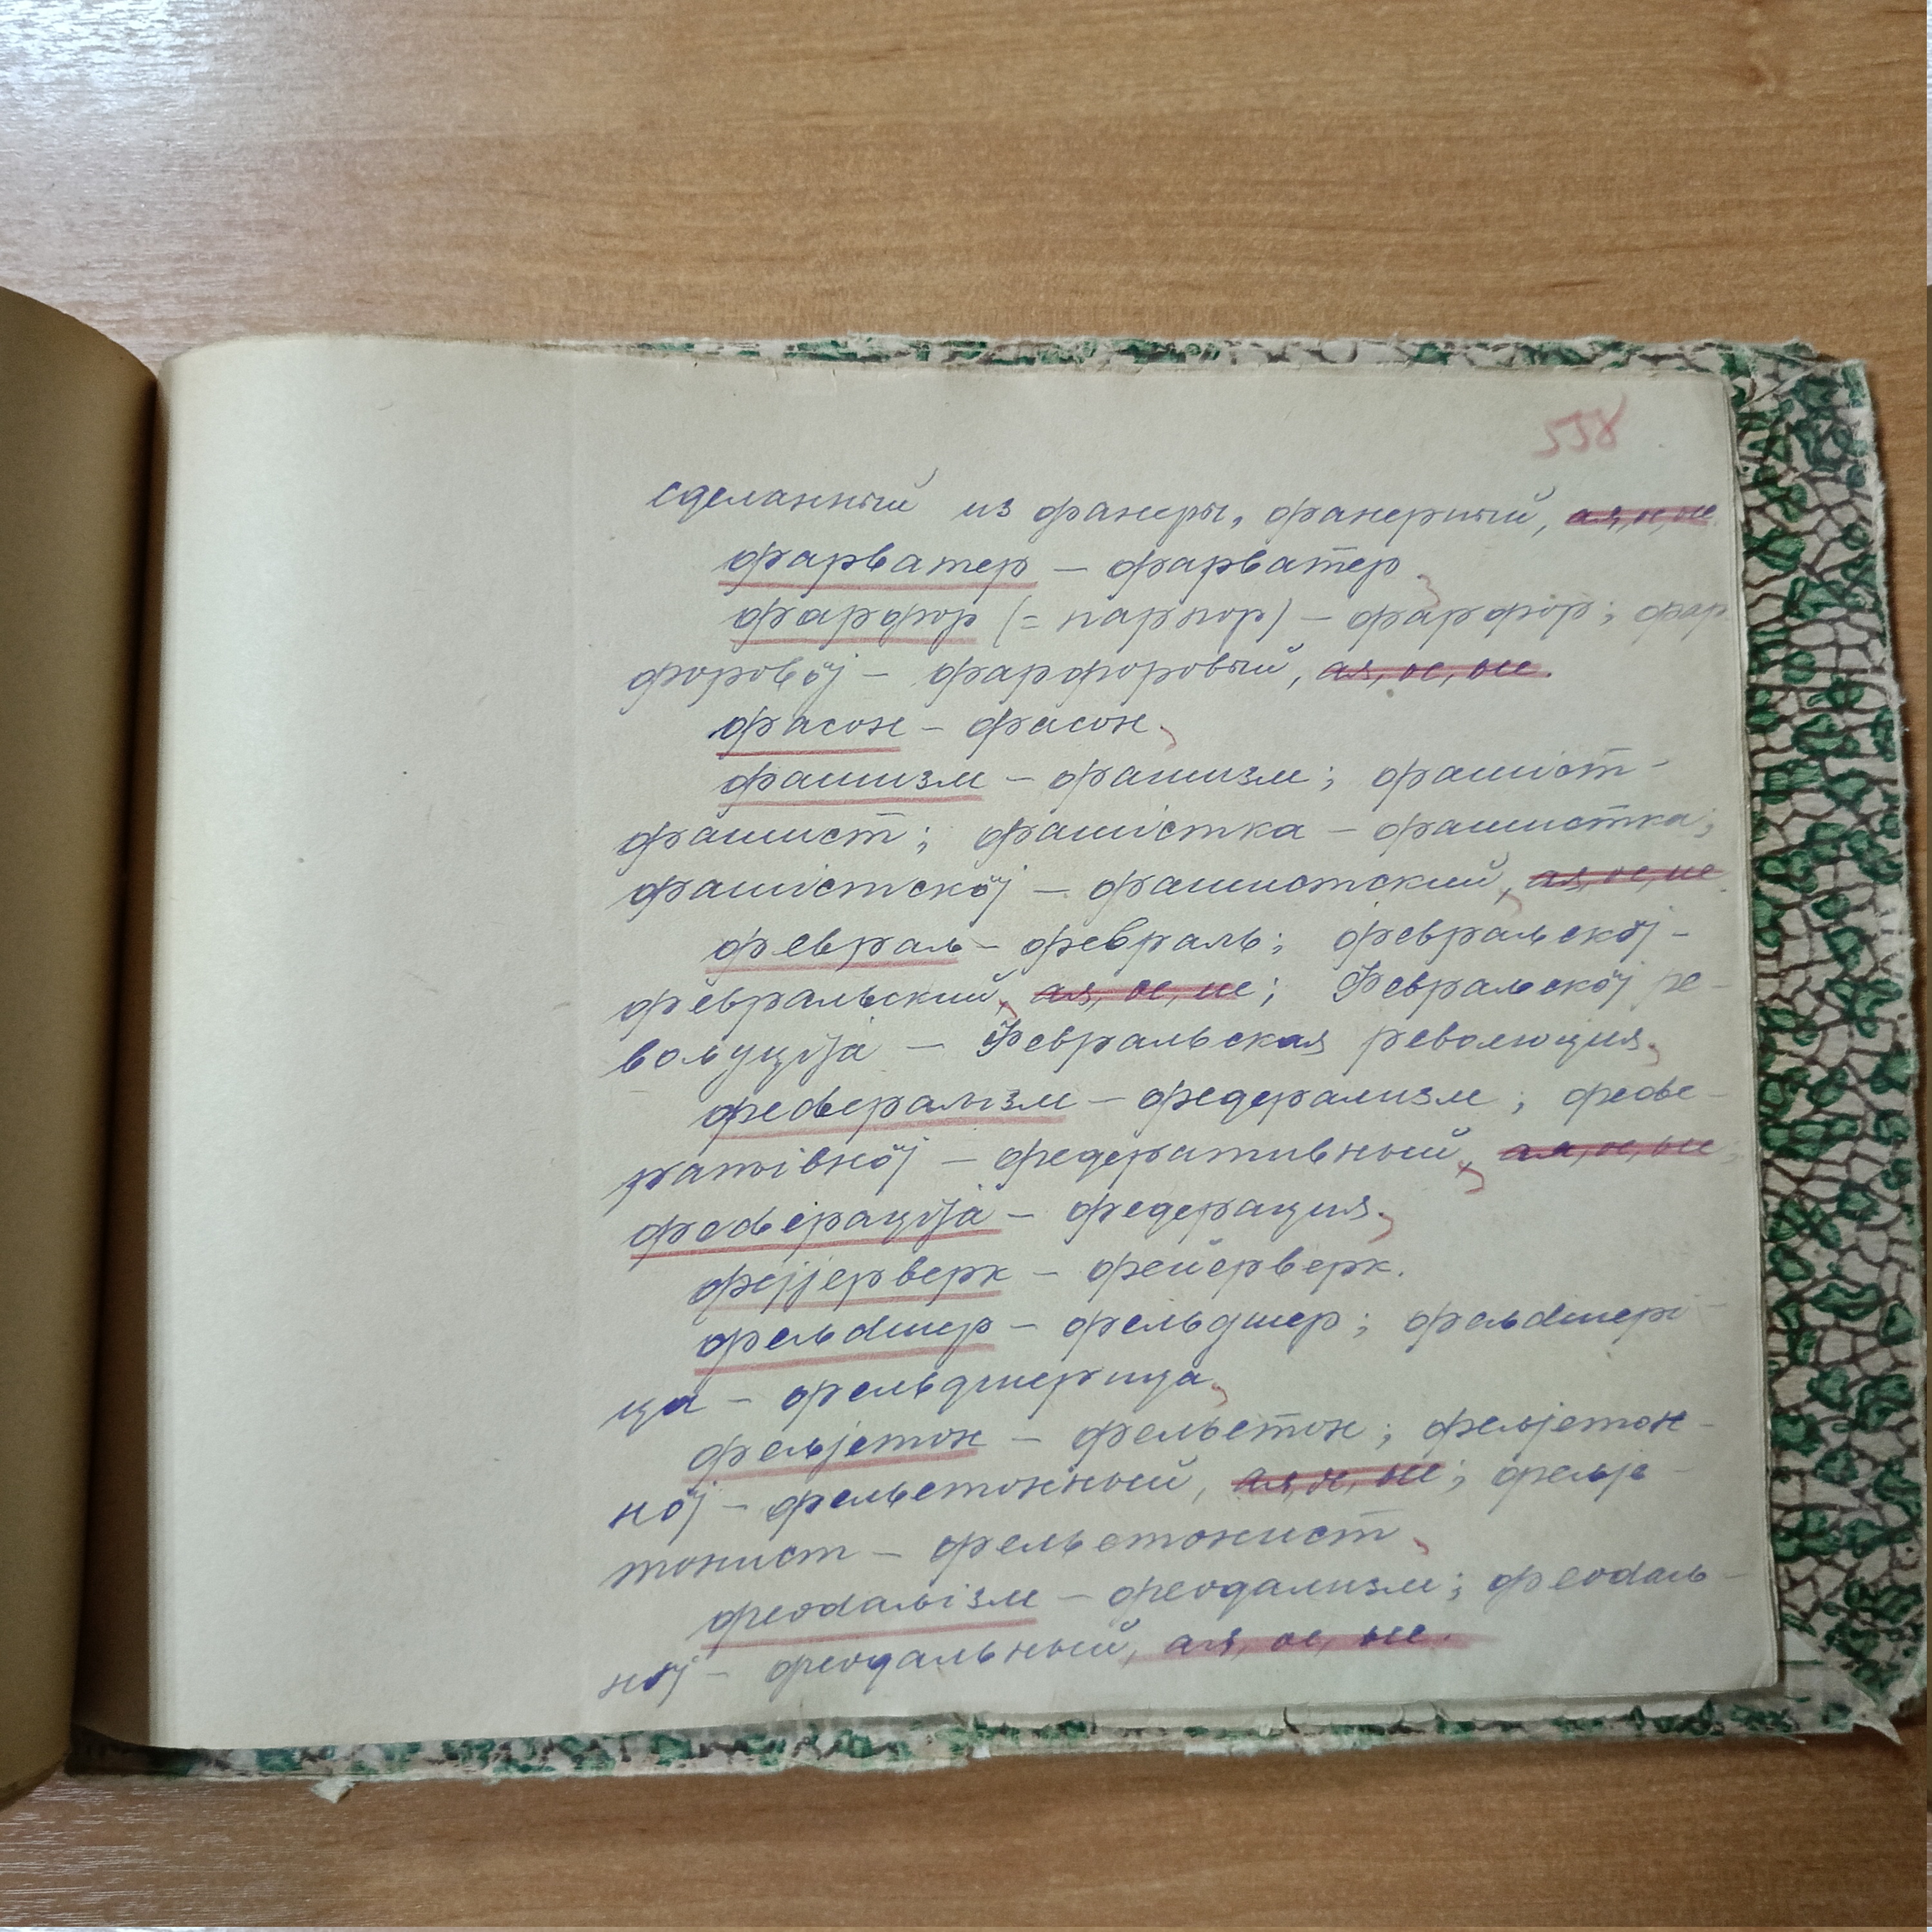 558
сделанный из фанеры, фанерный, ая, ое, ые.
фарватер – фарватер
фарфор (= парпор) – фарфор; фар
форовӧј – фарфоровый, ая, ое, ые.
фасон – фасон,
фашизм – фашизм; фашіст –
фашист; фашістка – фашистка;
фашістскӧј – фашистский, ая, ое, ие
феврал̨ь – февраль; февральскӧј –
февральский, ая, ое, ие; Февральскӧј ре-
вольуціја – Февральская революция,
феdералізм – федерализм; феdе-
ратівнӧј – федеративный, ая, ое, ые;
феdераціја – федерация,
фејјерверк – фейерверк.
фельdшер – фельдшер; фельdшері-
ца – фельдшерица,
фельјетон – фельетон; фельјетон-
нӧј – фельетонный, ая, ое, ые; фельје-
тонист – фельетонист,
феоdалізм – феодализм; феоdаль-
нӧј – феодальный, ая, ое, ые.